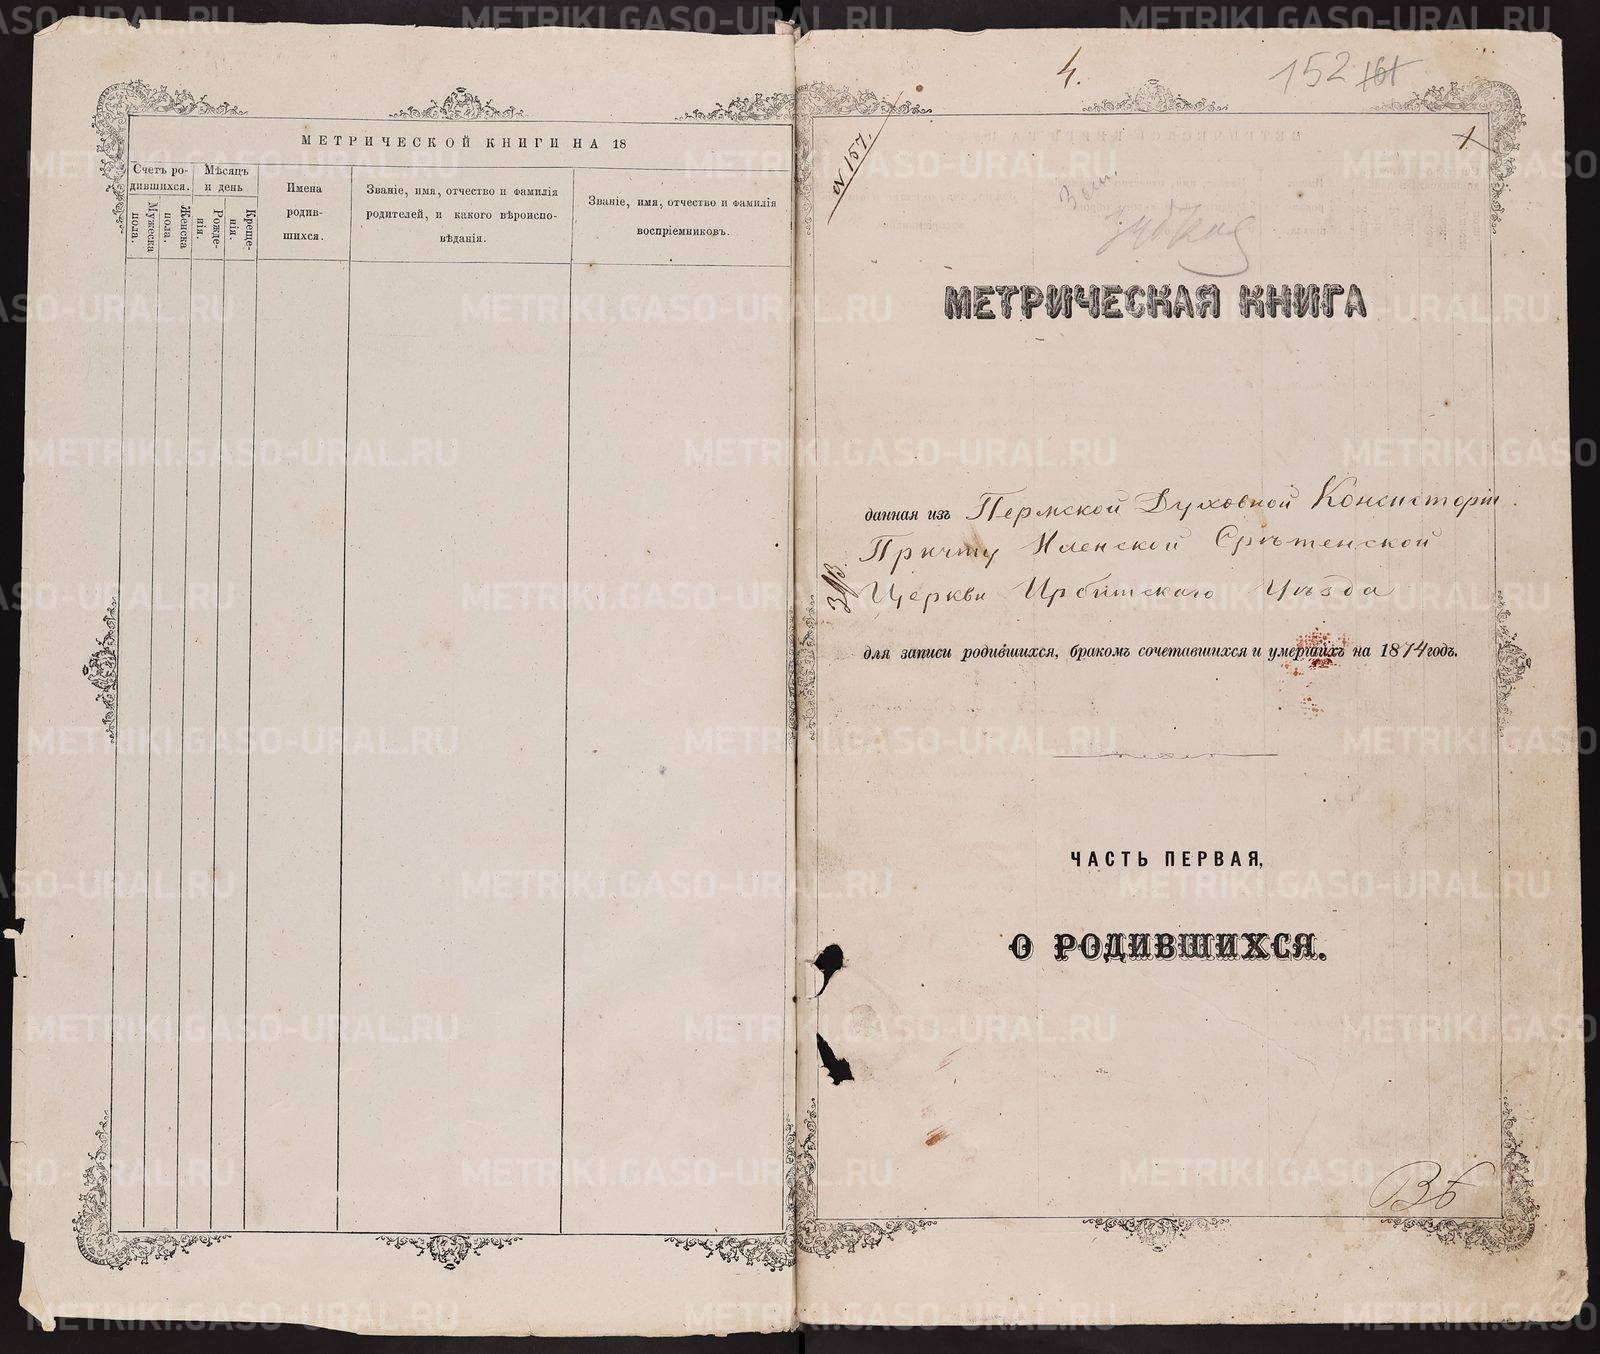 МЕТРИЧЕСКОЙ КНИГИ НА 18
Счетъ ро-
дившихся.
Мѣсяцъ
и день
Мужеска
пола.
Женска
пола.
Рожде-
нія.
Креще-
нія.
Имена
родив-
шихся.
Званіе, имя, отчество и фамилія
родителей, и какого вѣроиспо-
вѣданія.
Званіе, имя, отчество и фамилія
воспріемниковъ.
4.
152 161
1
№ 157.
МЕТРИЧЕСКАЯ КНИГА
данная изъ Пермской Духовной Консисторіи
Причту Иленской Срѣтенской
Церкви Ирбитскаго Уѣзда
для записи родившихся, бракомъ сочетавшихся и умершихъ на 1874 годъ.
ЧАСТЬ ПЕРВАЯ,
О РОДИВШИХСЯ.
METRIKI.GASO-URAL.RU